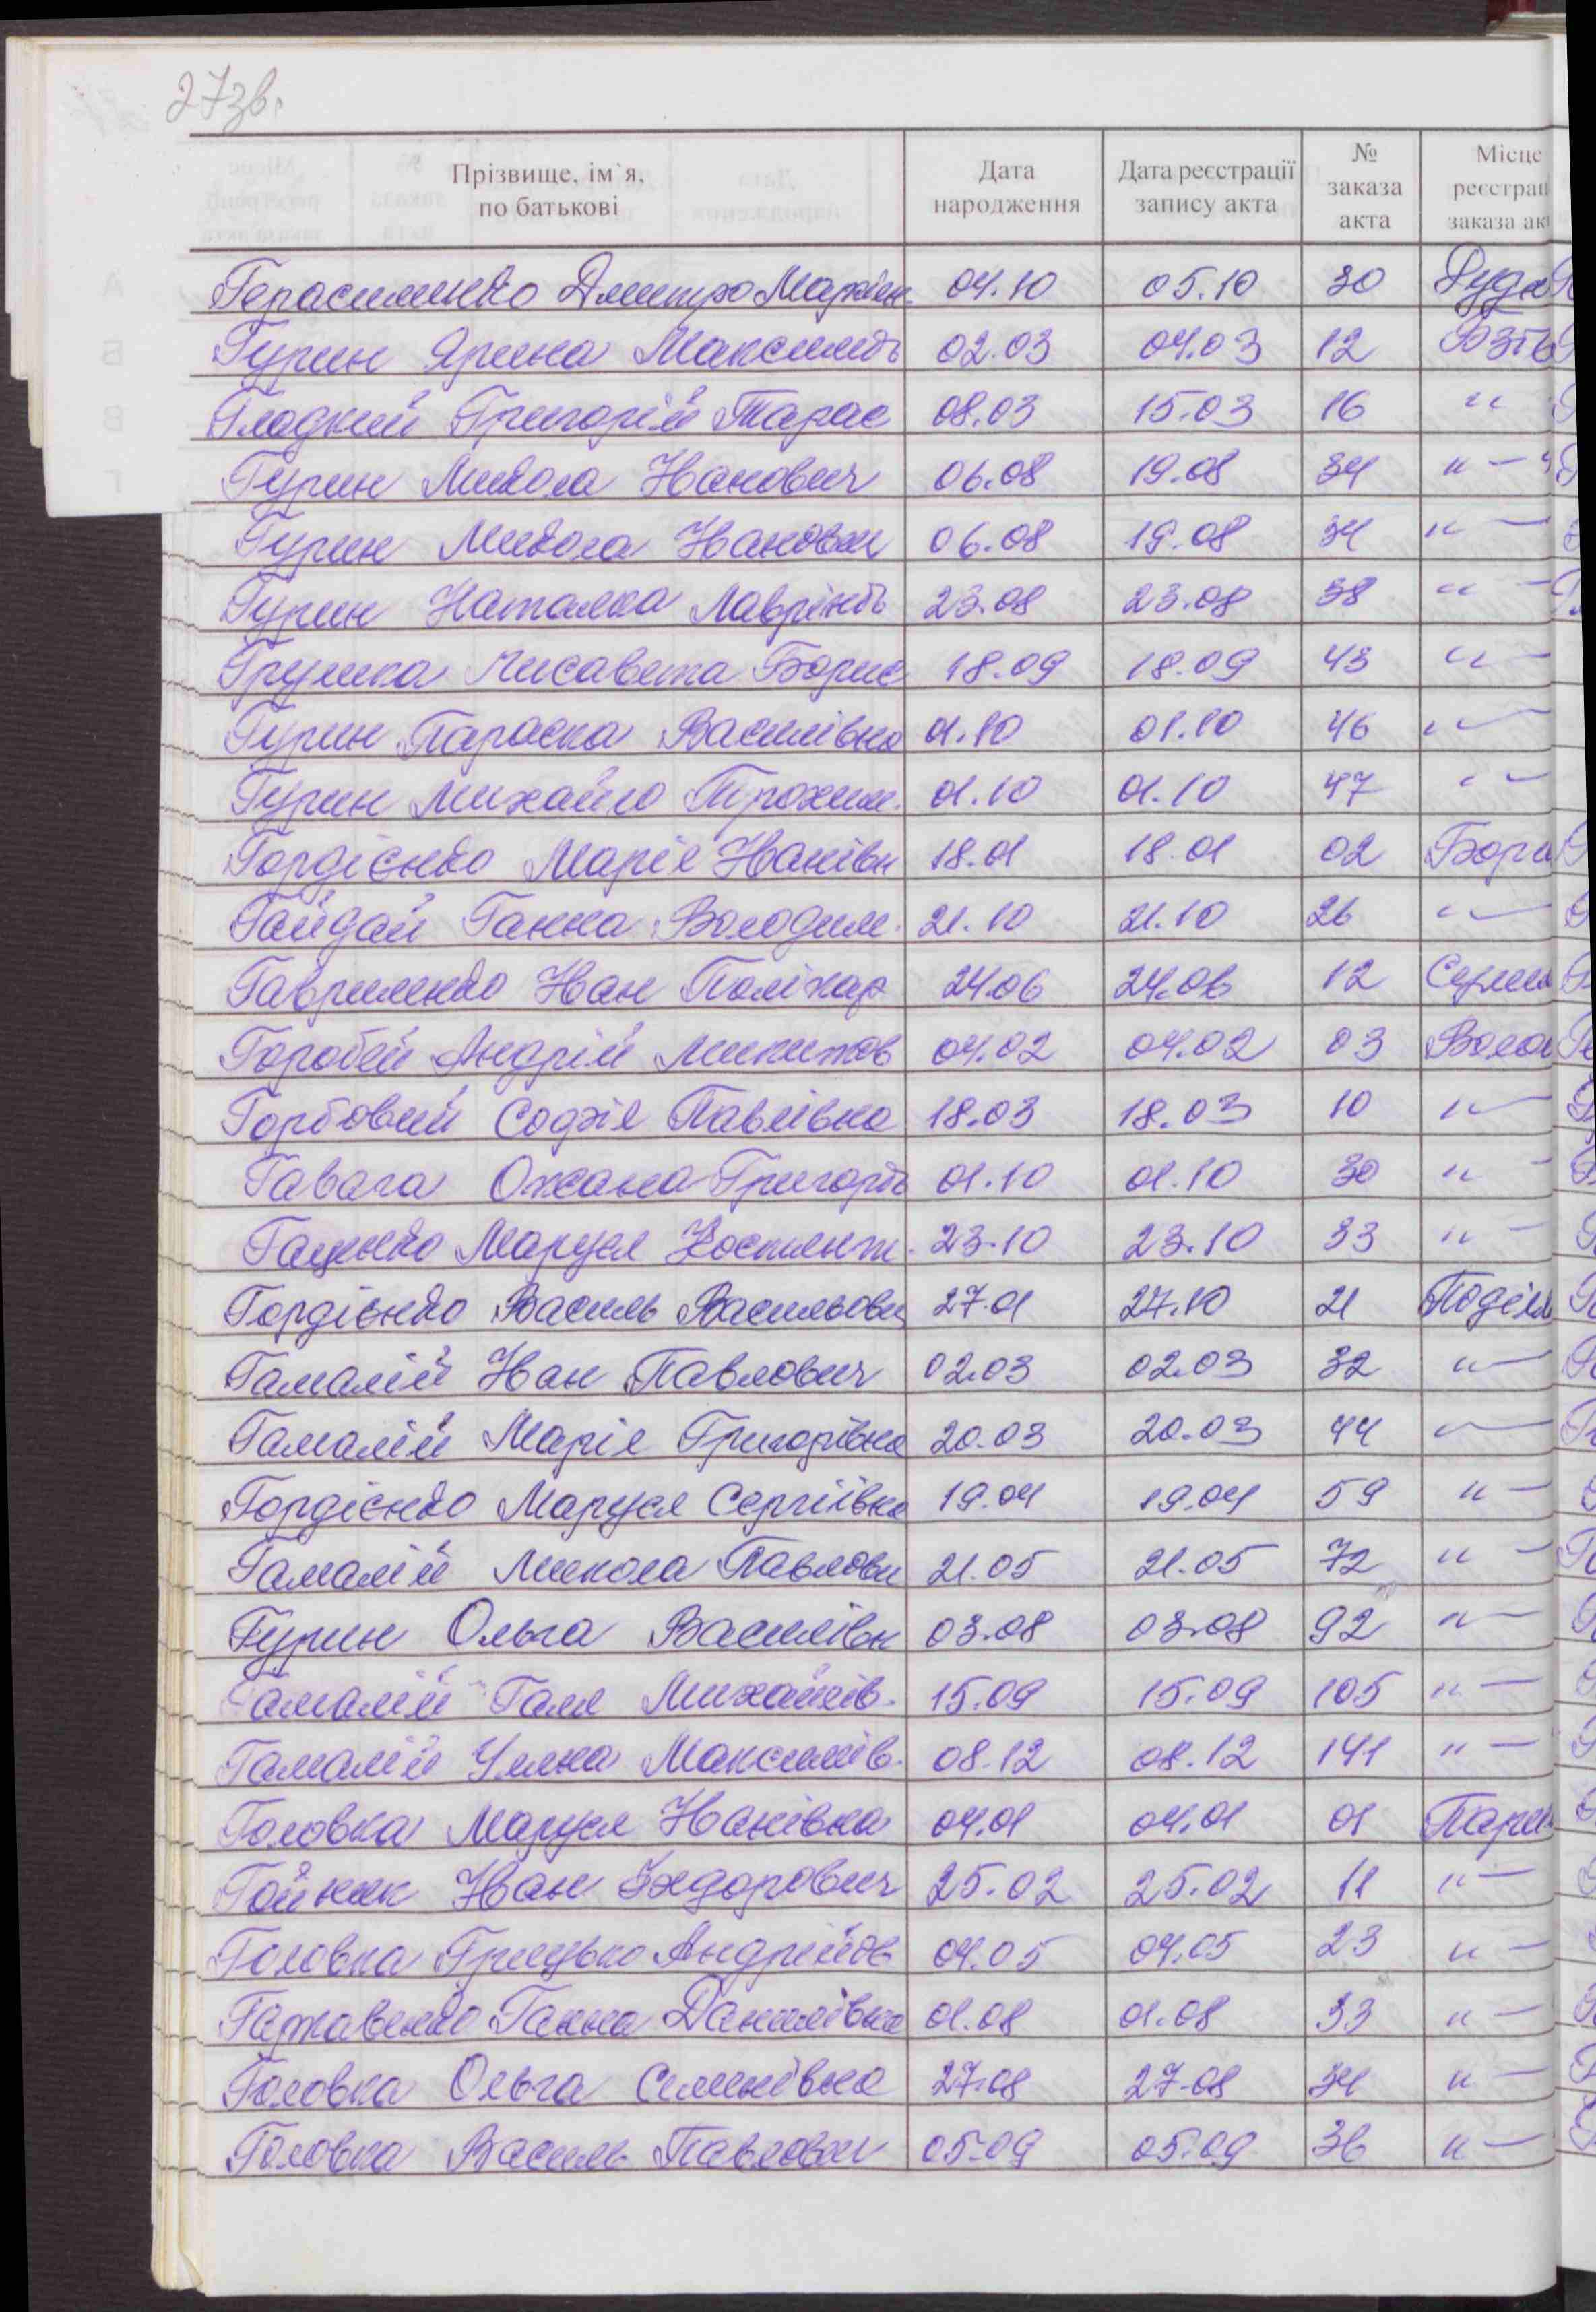 27зв.
Прізвище, ім`я, по батькові Дата народження Дата реєстрації запису акта № заказа акта Місце реєстрац заказа ак
Герасименко Дмитро Маркія. 04.10 05.10 30 Руда
Гурин Ярина Максимів 02.03 04.03 12 Взів
Гладкий Григорій Тарас 08.03 15.03 16 "
Гурин Микола Іванович 06.08 19.08 34 " — "
Гурин Микола Іванович 06.08 19.08 34 " —
Гурин Наталка Лаврінів 23.08 23.08 38 " —
Грушка Лисавета Борис 18.09 18.09 43 " —
Гурин Параска Василівна 01.10 01.10 46 " —
Гурин Михайло Трохим. 01.10 01.10 47 " —
Гордієнко Марія Іванівн 18.01 18.01 02 Бора
Гайдай Ганна Володим. 21.10 21.10 26 " —
Гавриленко Іван Полікар 24.06 24.06 12 Серги
Горобей Андрій Микитов 04.02 04.02 03 Воло
Горбовий Софія Павлівна 18.03 18.03 10 " —
Гавага Оксана Григорів 01.10 01.10 30 " —
Гаценко Маруся Костянт. 23.10 23.10 33 " —
Гордієнко Василь Васильови 27.01 27.10 21 Поділл
Гамалій Іван Павлович 02.03 02.03 32 " —
Гамалій Марія Григорівна 20.03 20.03 44 " —
Гордієнко Маруся Сергіївна 19.04 19.04 59 " —
Гамалій Микола Павлови 21.05 21.05 72 " —
Гурин Ольга Василівн 03.08 03.08 92 " —
Гамалій Галя Михайлів. 15.09 15.09 105 " —
Гамалій Уляна Максимів. 08.12 08.12 141 " —
Головка Маруся Іванівна 04.01 04.01 01 Пари
Гойняк Іван Хведорович 25.02 25.02 11 " —
Головка Грицько Андрійов 04.05 04.05 23 " —
Гаржавенко Ганна Данилівна 01.08 01.08 33 " —
Головка Ольга Семенівна 27.08 27.08 34 " —
Головка Василь Павлович 05.09 05.09 36 " —